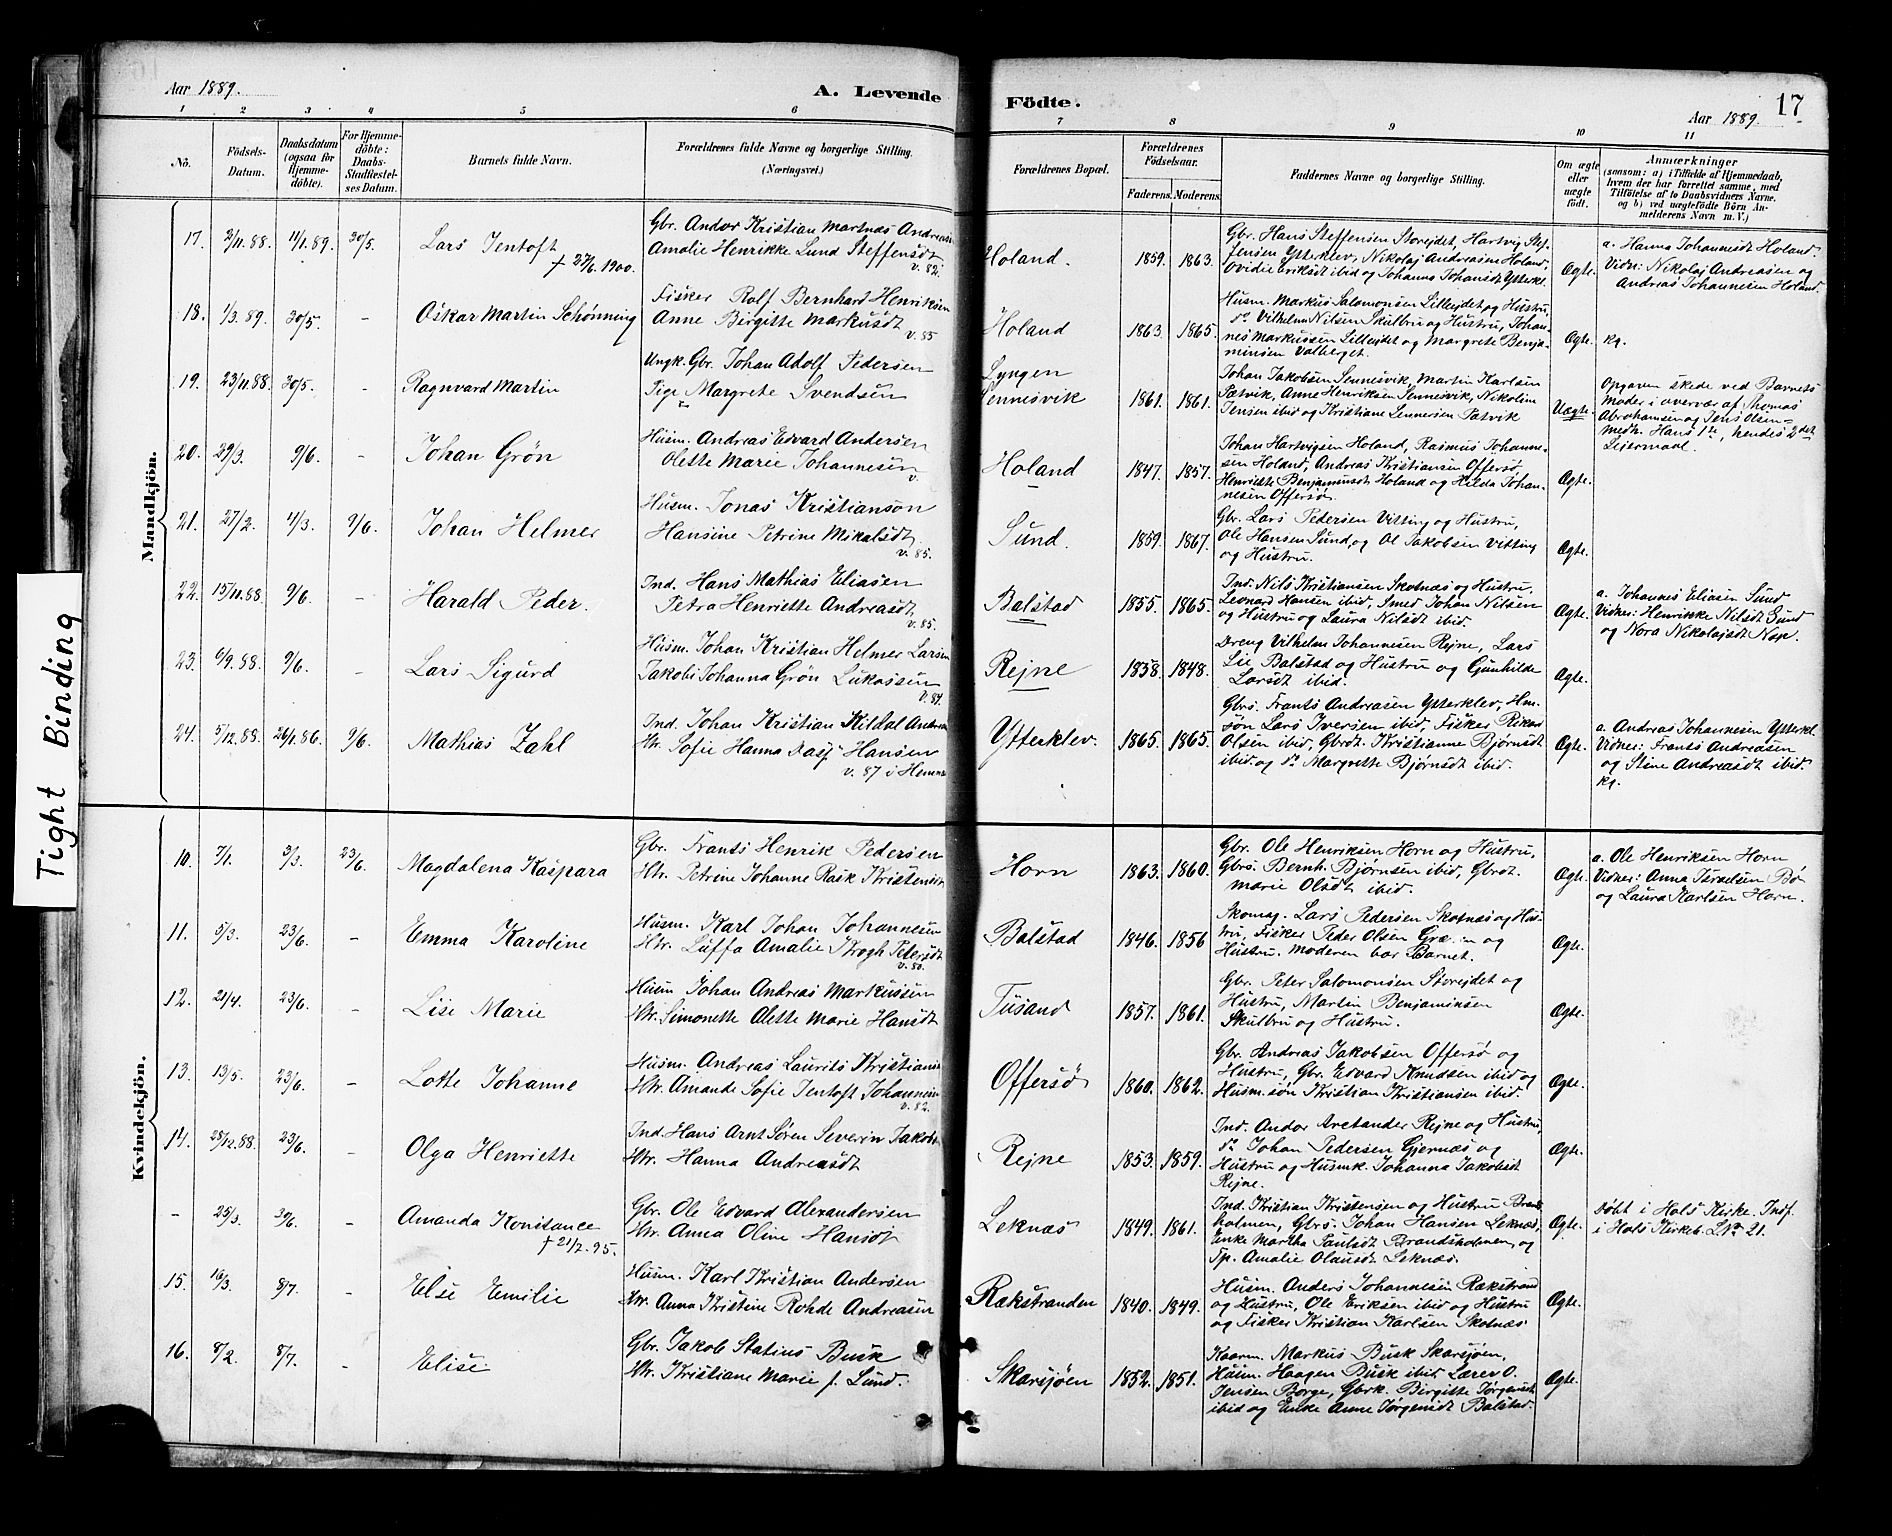 Aar 1889.
A. Levende
1 2 3 4 5 6
Nô.
Födsels-Datum.
Daabsdatum (ogsaa för Hjemmedöbte).
For Hjemmedöbte: Daabs-Stadfæstelses Datum.
Barnets fulde Navn.
Forældrenes fulde Navne og borgerlige Stilling. (Næringsvei.)
Mandkjön.
17. 2/11.88. 11/1.89. 30/5. Lars Jentoft Gbr. Andor Kristian Martnæs Andreas
† 27/6.1900. Amalie Henrikke Lund Steffensdt
v. 82.
18. 1/3.89. 30/5. – Oskar Martin Schønning Fisker Rolf Bernhard Henriksen
Anne Birgitte Markusdt
v. 85
19. 23/11.88. 30/5. – Ragnvard Martin Ungk. Gbr. Johan Adolf Pedersen
Pige Margrete Svendsen
20. 29/3. 9/6. – Johan Grön Husm. Andreas Edvard Andersen
Olette Marie Johannesen
v.
21. 27/2. 4/3. 9/6. Johan Helmer Husm. Jonas Kristianson
Hansine Petrine Mikalsdt.
v. 85.
22. 15/11.88. 9/6. – Harald Peder. Ind. Hans Mathias Eliasen
Petra Henriette Andreasdt
v. 85.
23. 6/9.88. 9/6. – Lars Sigurd Husm. Johan Kristian Helmer Larsen
Jakobi Johanna Grön Lukassen
v. 84.
24. 5/12.88. 26/1.86. 9/6. Mathias Zahl Ind. Johan Kristian Kildal Andrea
Htr. Sofie Hanna Dasj Hansen
v. 87 i Hemnæ
Kvindekjön.
10. 7/1. 3/3. 23/6. Magdalena Kaspara Gbr. Frants Henrik Pedersen
Htr. Petrine Johanne Rask Kristensdt
11. 5/3. 23/6. – Emma Karoline Husm. Karl Johan Johannesen
Htr. Luffa Amalie Krogh Petersdt
v. 80.
12. 21/4. 23/6. – Lise Marie Husm Johan Andreas Markussen
Htr. Simonette Olette Marie Hansdt
13. 13/5. 23/6. – Lotte Johanne Husm. Andreas Laurits Kristians
Htr. Amande Sofie Jentoft Johannesen
v. 82.
14. 28/12.88. 23/6. – Olga Henriette Ind. Hans Arnt Søren Severin Jakobs
Htr. Hanna Andreasdt
– 25/3. 30/6. – Amanda Konstance Gbr. Ole Edvard Alexandersen
† 21/2.95. Htr. Anna Oline Hansdt
15. 16/3. 8/7. – Else Emilie Husm. Karl Kristian Andersen
Htr. Anna Kristine Rohde Andreasen
16. 8/2. 8/7. – Elise Gbr. Jakob Statius Busk
Htr. Kristiane Marie f. Lund.
Tight Binding
Födte.
17
Aar 1889.
7 8 9 10 11
Forældrenes Bopæl.
Forældrenes Födselsaar.
Faderens. Moderens.
Faddernes Navne og borgerlige Stilling.
Om ægte eller uægte födt.
Anmærkninger
(saasom: a) i Tilfælde af Hjemmedaab,
hvem der har forrettet samme, med
Tilföielse af to Daabsvidners Navne,
og b) ved uægtefödte Börn An-
melderens Navn m. V.)
Holand. 1859. 1863. Gbr. Hans Steffensen Storejdet, Hartvig Stef-
fensen Ytterklev, Nikolaj Andreasen Holand,
Ovidie Eriksdt ibid og Johanna Johansdt Ytterkl. Ægte.
a. Hanna Johannesdt Holand.
Vidner: Nikolaj Andreasen og
Andreas Johannesen Holand.
Holand 1863 1865. Husm. Markus Salomonsen Lillejdet og Hustru,
do Vilhelm Nilsen Skulbru og Hustru, Johan-
nes Markussen Lillejdet og Margrete Benja-
minsen Valberget. Ægte. kg.
Lyngen
Sennesvik 1861. 1861. Johan Jakobsen Sennesvik, Martin Karlsen
Petvik, Anne Henriksen Sennesvik, Nikoline
Jensen ibid og Kristiane Lennersen Petvik Uægte.
Opgaven skede ved Barnets
Moder i overvær af Thomas
Abrahamsen og Jens Olsen=
Medh. Hans 1te, hendes 2det
Leiermaal.
Holand 1847. 1857. Johan Hartvigsen Holand, Rasmus Johanne-
sen Holand, Andreas Kristiansen Offersø,
Henriette Benjaminsdt Holand og Hilda Johan-
nesen Offersø. Ægte.
Sund. 1859. 1867. Gbr. Lars Pedersen Vitting og Hustru,
Ole Hansen Sund, og Ol Jakobsen Vitting
og Hustru. Ægte.
Balstad 1855. 1865. Ind. Nils Kristiansen Skotnæs og Hustru,
Leonard Hansen ibid, Smed Johan Nilsen
og Hustru og Laura Nilsdt ibid. Ægte.
a. Johannes Eliasen Sund
Vidner: Henrikke Nilsdt Sund
og Nora Nikolajsdt Nap.
Rejne 1858. 1848. Dreng Vilhelm Johannesen Rejne, Lars
Lie, Balstad og Hustru og Gunhilde
Larsdt ibid. Ægte.
Ytterklev. 1865. 1865. Gbrs. Frants Andreasen Ytterklev, Hm-
søn Lars Iversen ibid, Fisker Rikard
Olsen ibid, Gbrdt. Kristianne Bjørnsdt
ibid og do Margrette Bjørnsdt ibid. Ægte.
a. Andreas Johannesen Ytterkl.
Vidner: Frants Andreasen
og Stine Andreasdt ibid.
kg.
Horn 1863. 1860. Gbr. Ole Henriksen Horn og Hustru,
Gbrs. Bernh. Bjørnsen ibid, Gbrdt.
Marie Olsdt ibid. Ægte.
a. Ole Henriksen Horn
Vidner: Anna Israelsen Bø
og Laura Karlsen Horn.
Balstad 1846. 1856 Skomag. Lars Pedersen Skotnæs og Hus-
tru, Fisker Peder Olsen og
Hustru. Moderen bar Barnet. Ægte.
Tusand 1857. 1861. Gbr. Peter Salomonsen Storejdet og
Hustru, Martin Benjaminsen
Skulbru og Hustru. Ægte.
Offersø 1860. 1862. Gbr. Andreas Jakobsen Offersø og
Hustru, Gbr. Edvard Knudsen ibid og
Husm.søn Kristian Kristiansen ibid. Ægte.
Rejne 1853. 1859. Ind. Andor Aretander Rejne og Hustru,
do Johan Pedersen Gjernæs og
Hustru og Husmk. Johanna Jakobsdt
Rejne. Ægte.
Leknæs 1849. 1861. Ind. Kristian Kristensen og Hustru Brands-
holmen, Gbrs. Johan Hansen Leknæs,
Enke Martha Paulsdt Brandsholmen, og
Tp. Amalie Olausdt Leknæs. Ægte.
døbt i Hols Kirke. Indf.
i Hols Kirkeb. L.No 21.
Rækstranden 1840. 1849. Husm. Anders Johannesen Rækstrand
og Hustru, Ole Eriksen ibid og Hustru
og Fisker Kristian Karlsen Skotnæs Ægte.
Skarsjøen 1852. 1851. Kaarm. Markus Busk Skarsjøen,
Husm. Haagen Busk ibid, Lærer O.
Jensen Borge, Gbrk. Birgitte Jørgensdt
ibid og Enke Anne Jørgensdt Balstad. Ægte.